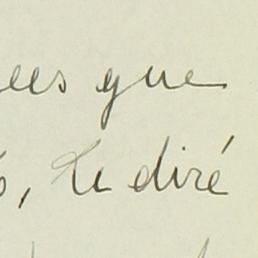 ees que
, Le diré